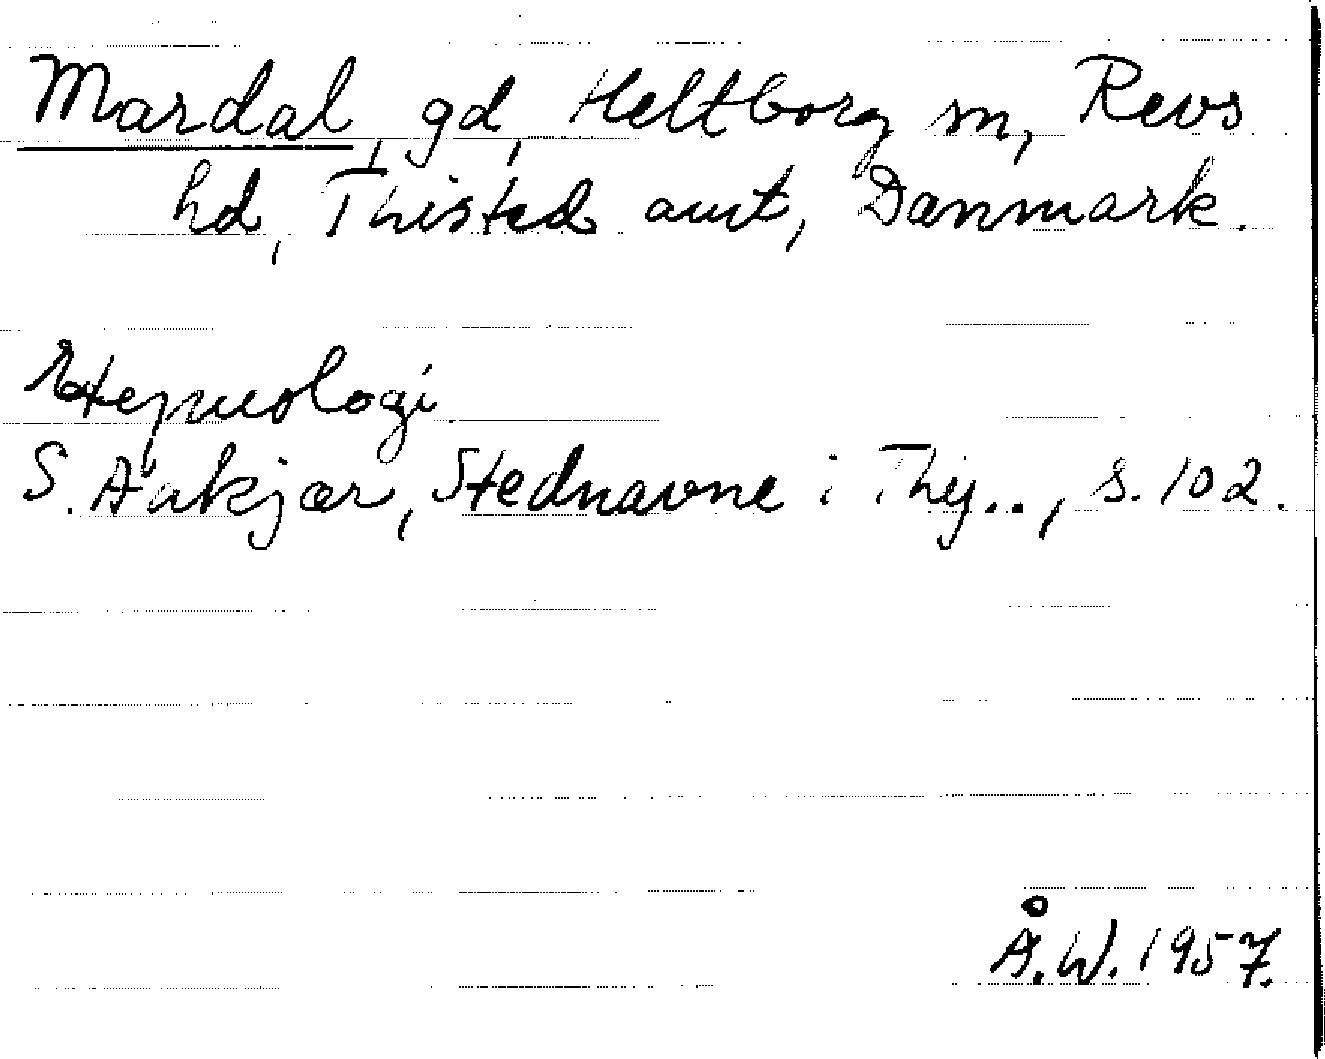 Mardal, gd, Heltborg sn, Revs
hd, Thisted amt, Danmark.
Etymologi
S. Aakjær, Stednavne i Thy.., s. 102.
Å.W. 1957.